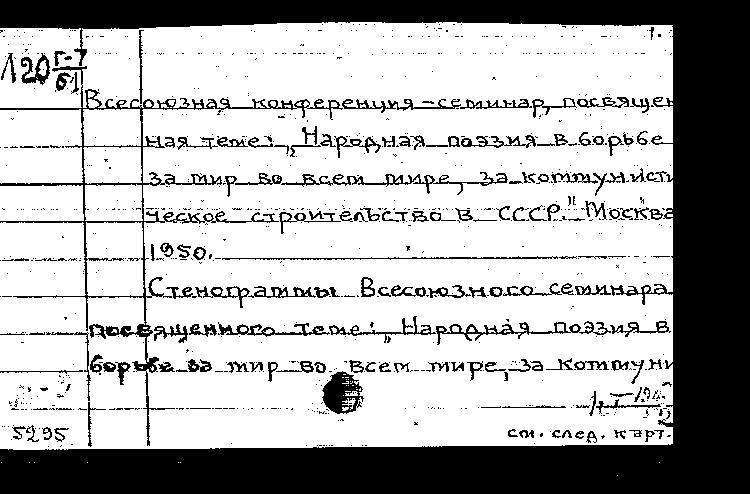 1.
120 Г-7
61
Всесоюзная конференция-семинар, посвящен
ная теме: „Народная поэзия в борьбе
за мир во всем мире, за коммунисти
ческое строительство в СССР." Москва
1950.
Стенограммы Всесоюзного семинара
посвященного теме: „Народная поэзия в
борьбе за мир во всем мире, за коммуни
5295
см. след. карт.